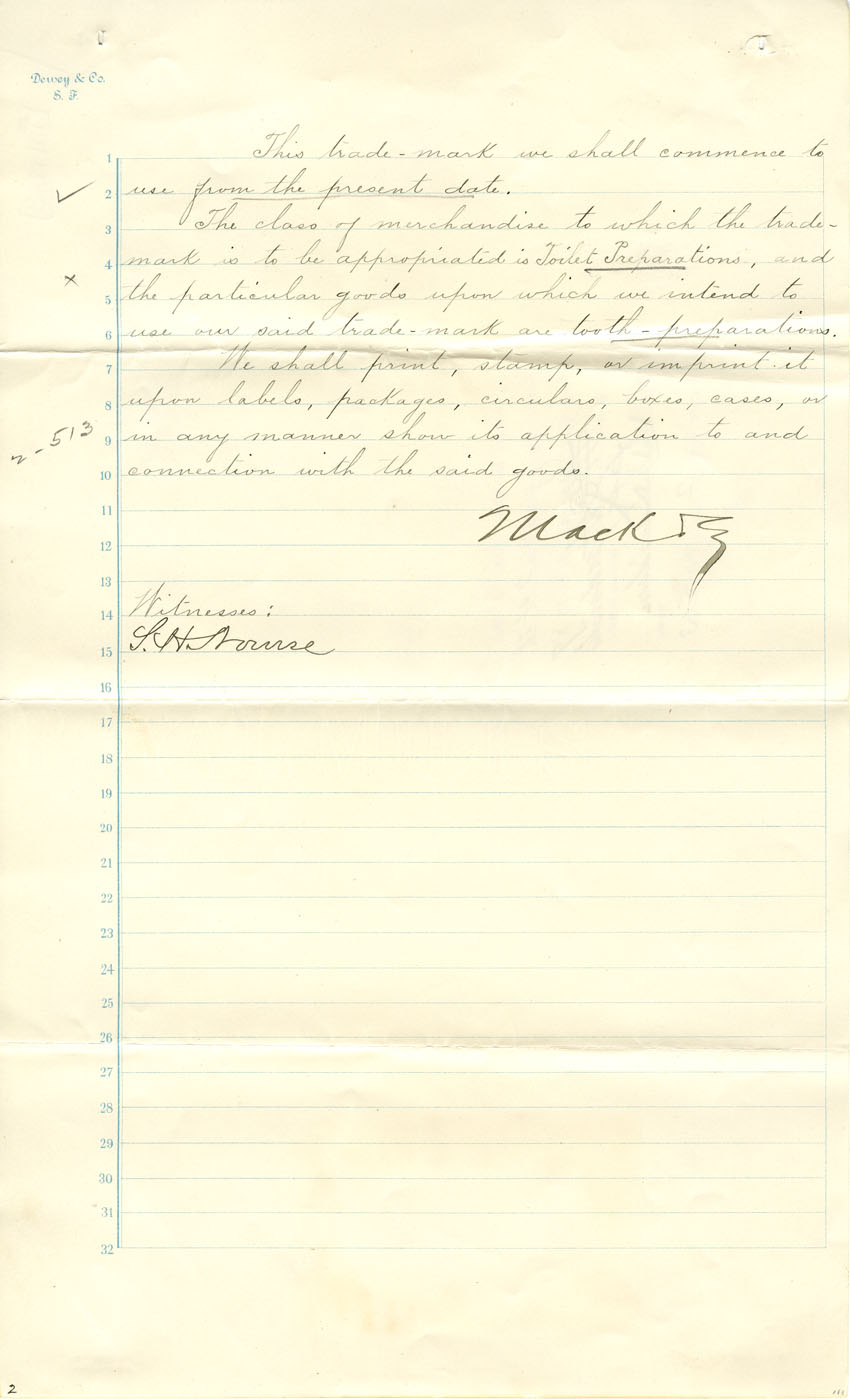 Dewey & Co.
S. F.
1 This trade-mark we shall commence to
2 use from the present date.
3 The class of merchandise to which the trade-
4 mark is to be appropriated is Toilet Preparations, and
5 the particular goods upon which we intend to
6 use our said trade-mark are tooth-preparations.
7 We shall print, stamp, or imprint it
8 upon labels, packages, circulars, boxes, cases, or
2-513
9 in any manner show its application to and
10 connection with the said goods.
11
12 Mack &
13
14 Witnesses:
15 S. H. Nourse
16
17
18
19
20
21
22
23
24
25
26
27
28
29
30
31
32
2